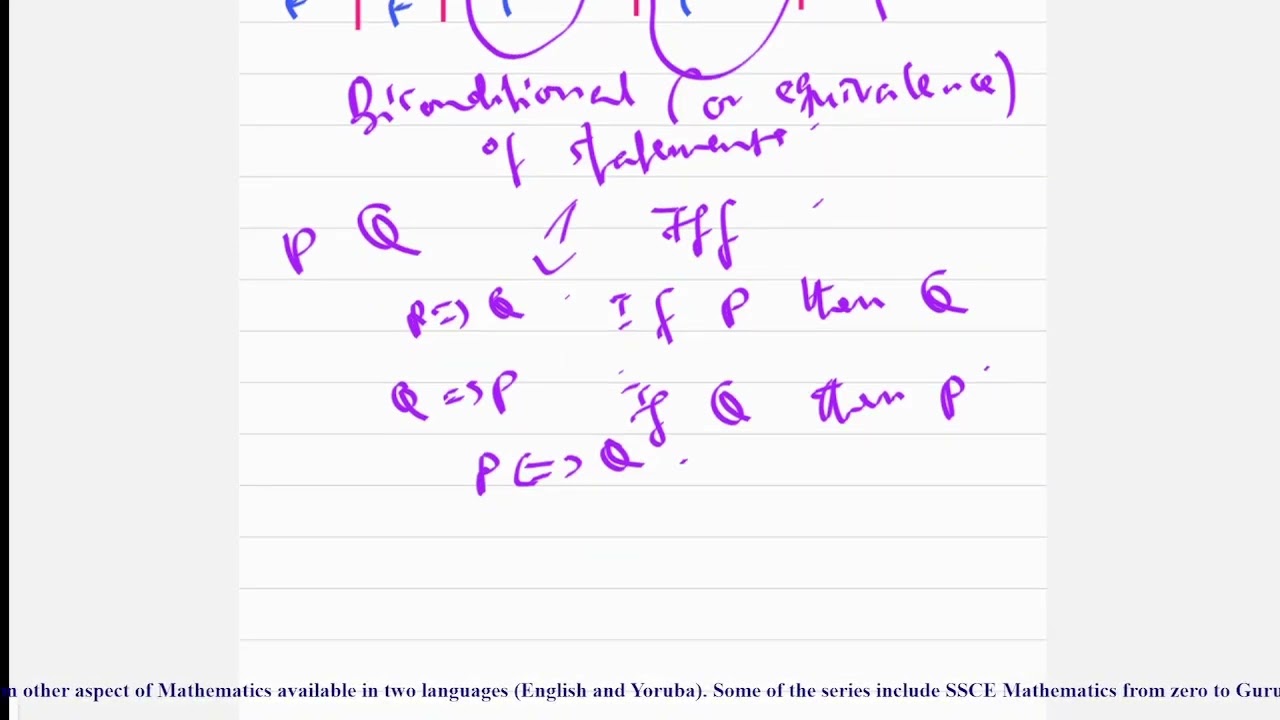 F | F | | |
Biconditional (or equivalence)
of statements
P Q Iff
P => Q If P then Q
Q => P If Q then P
P <=> Q
m other aspect of Mathematics available in two languages (English and Yoruba). Some of the series include SSCE Mathematics from zero to Guru